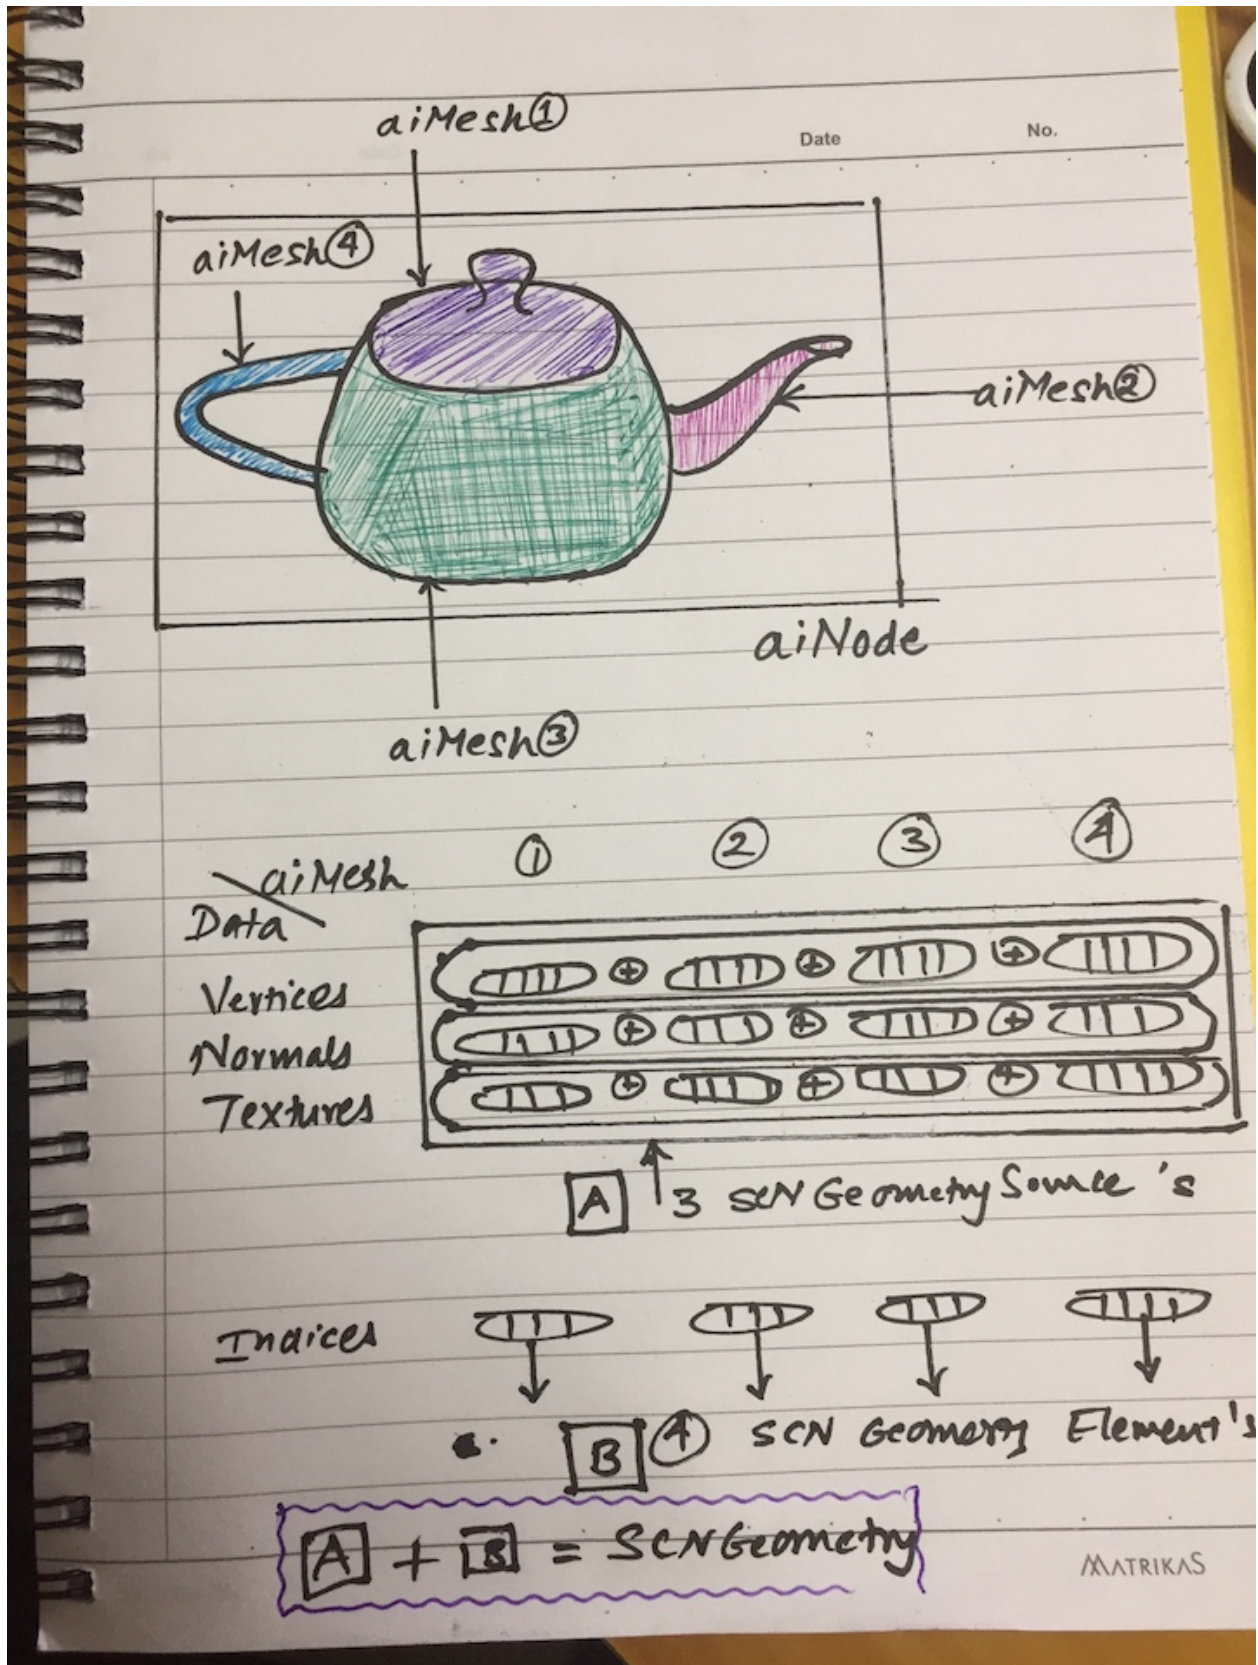 aiMesh①
Date No.
aiMesh④
aiMesh②
aiNode
aiMesh③
① ② ③ ④
aiMesh
Data
Vertices
Normals
Textures
A 3 SCN Geometry Source's
Indices
B ④ SCN Geometry Element's
A + B = SCNGeometry
MATRIKAS